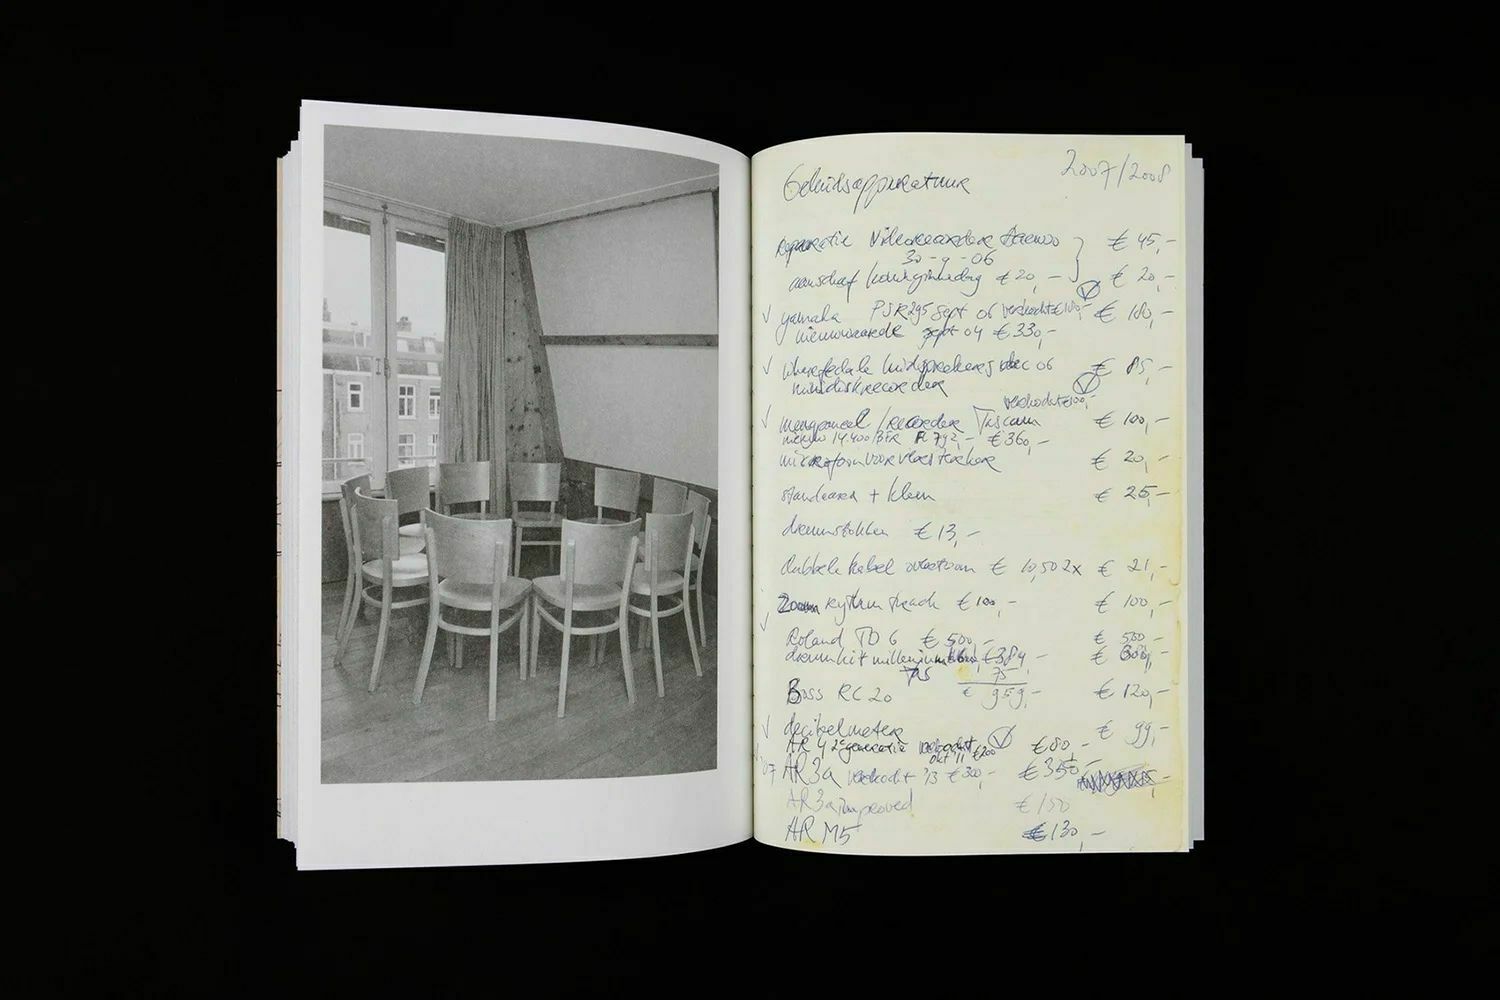 2007/2008
Geluidsapparatuur
reparatie Videorecorder Daewoo € 45,-
30-9-06
aanschaf koninginnedag € 20,- € 20,-
yamaha PSR295 sept 06 verkocht € 180,- € 180,-
nieuwwaarde sept 04 € 330,-
wharfedale luidsprekers dec 06 € 85,-
minidiskrecorder
verkocht €100,-
mengpaneel/recorder Tascam € 100,-
€ 360,-
microfoon voor vloer € 20,-
standaard + klem € 25,-
drumstokken € 13,-
dubbele kabel € 10,50 2x € 21,-
Zoom rythm track € 100,- € 100,-
Roland TD 6 € 500,- € 500,-
drumkit millenium € 384,-
75 75
€ 959,-
Boss RC 20 € 120,-
decibelmeter € 99,-
AR 4 2e generatie verkocht € 80,-
okt '11 €200
'07 AR3a verkocht '13 € 300,- € 350,-
AR3a improved € 150
AR M5 € 130,-